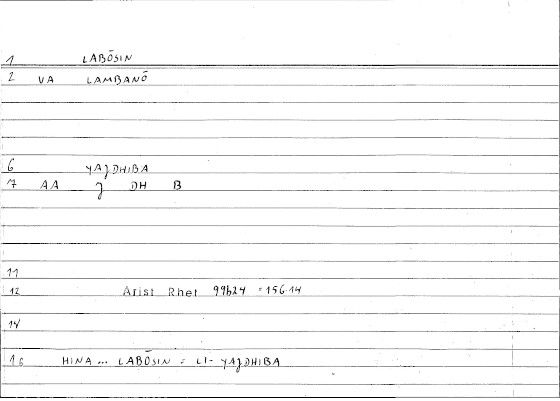 1 LABŌSIN
2 VA LAMBANŌ
6 YAJDHIBA
7 AA J DH B
11
12 Arist Rhet 99b24 = 156.14
14
18 HINA ... LABŌSIN = LI- YAJDHIBA